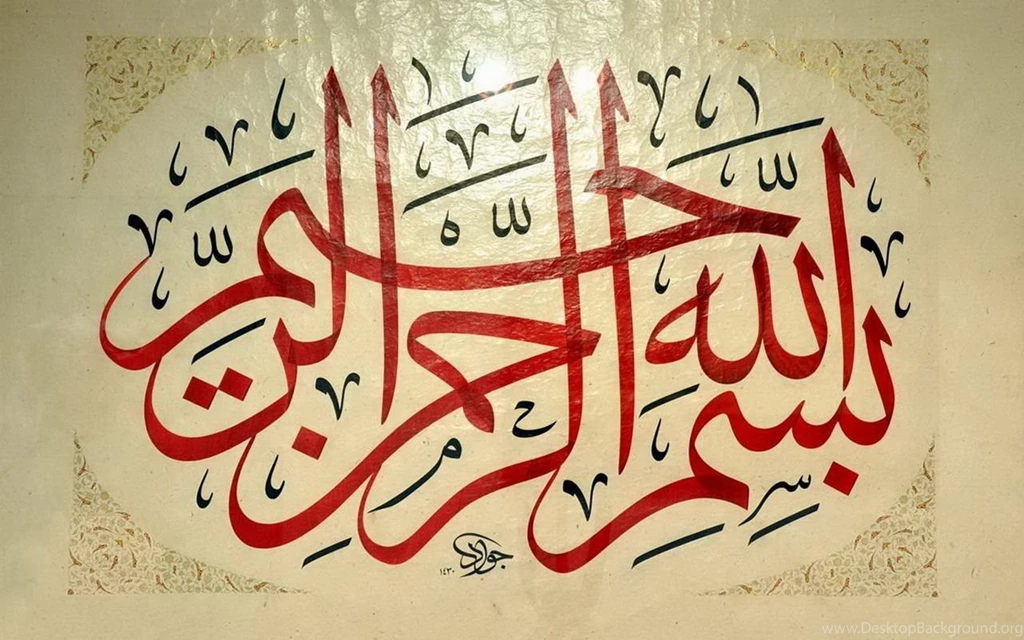 بسم الله الرحمن الرحيم
جواد
١٤٣٠
www.DesktopBackground.org